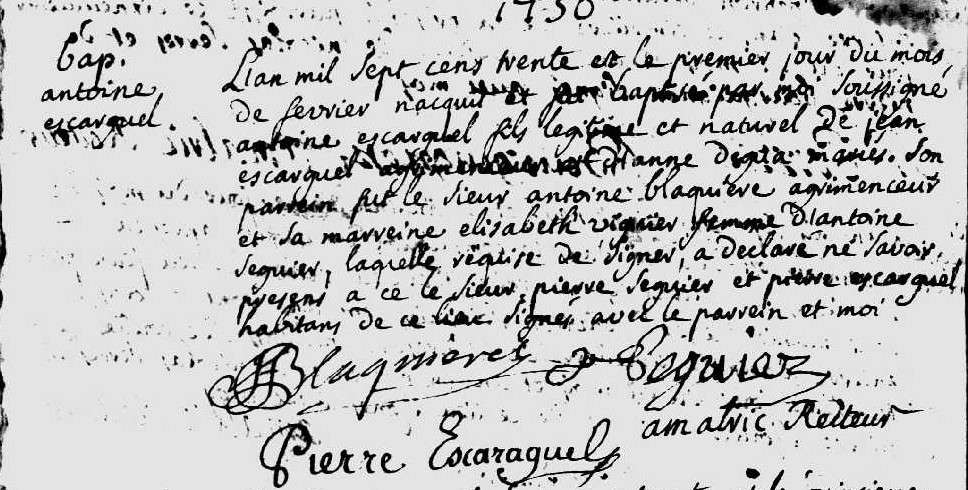 1730
Bap.
antoine
escarquel
L'an mil sept cens trente et le premier jour du mois
de fevrier nacquit et fut baptisé par moi soussigné
antoine escarquel fils legitime et naturel de jean
escarquel et d'anne mariés. son
parrein fut le sieur antoine blaquiere agrimenceur
et sa marreine elisabeth viguier femme d'antoine
seguier, laquelle reqüise de signer, a declaré ne savoir.
presens a ce le sieur pierre seguier et pierre escarquel
habitans de ce lieu signés avec le parrein et moi
Blaquiere P Seguier
amalric Recteur
Pierre Escaraguel